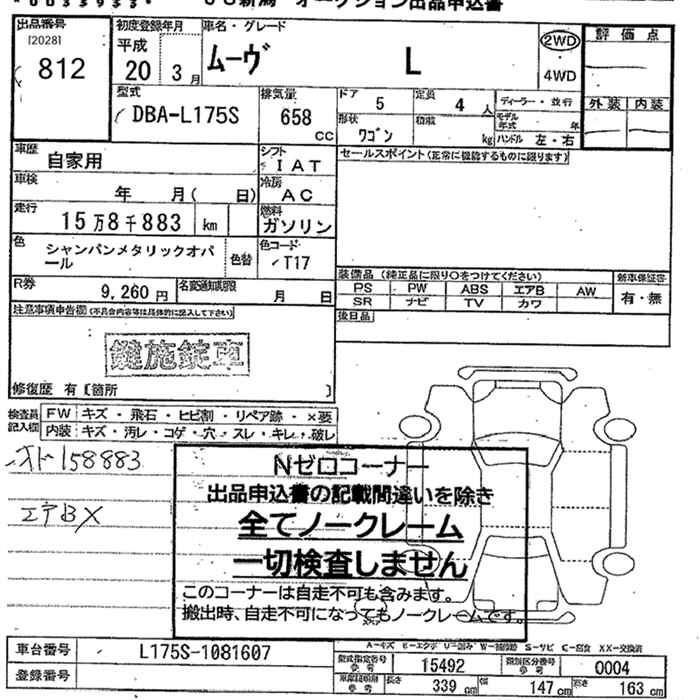 *0033933* JU新潟 オークション出品申込書
出品番号 初度登録年月 車名・グレード 評価点
[2028]
812 平成 20 3月 ムーヴ L 2WD ・ 4WD
型式 排気量 ドア 定員 ディーラー・並行 外装 内装
DBA-L175S 658 cc 5 4人
形状 積載 モデル年式 年
ワゴン kg ハンドル 左・右
車歴 自家用 シフト IAT セールスポイント(正常に機能するものに限ります)
車検 年 月( 日) 冷房 AC
走行 15万8千883 km 燃料 ガソリン
色 シャンパンメタリックオパール 色替 色コード T17
装備品(純正品に限り○をつけてください) 新車保証書
R券 9,260円 名変通知期限 月 日
PS PW ABS エアB AW 有・無
SR ナビ TV カワ
注意事項申告欄(不具合内容等は具体的に記入して下さい) 後日品
鍵施錠車
修復歴 有〔箇所 〕
検査員記入欄 FW キズ・飛石・ヒビ割・リペア跡・×要
内装 キズ・汚レ・コゲ・穴・スレ・キレ・破レ
メト158883
エアBX
Nゼロコーナー
出品申込書の記載間違いを除き
全てノークレーム
一切検査しません
このコーナーは自走不可も含みます。
搬出時、自走不可になってもノークレームです。
A-キズ E-エクボ U-凹み W-補修跡 S-サビ C-腐食 XX-交換済
車台番号 L175S-1081607 型式指定番号 参考 15492 類別区分番号 参考 0004
登録番号 車庫証明用 参考 長さ 339 cm 幅 147 cm 高さ 163 cm